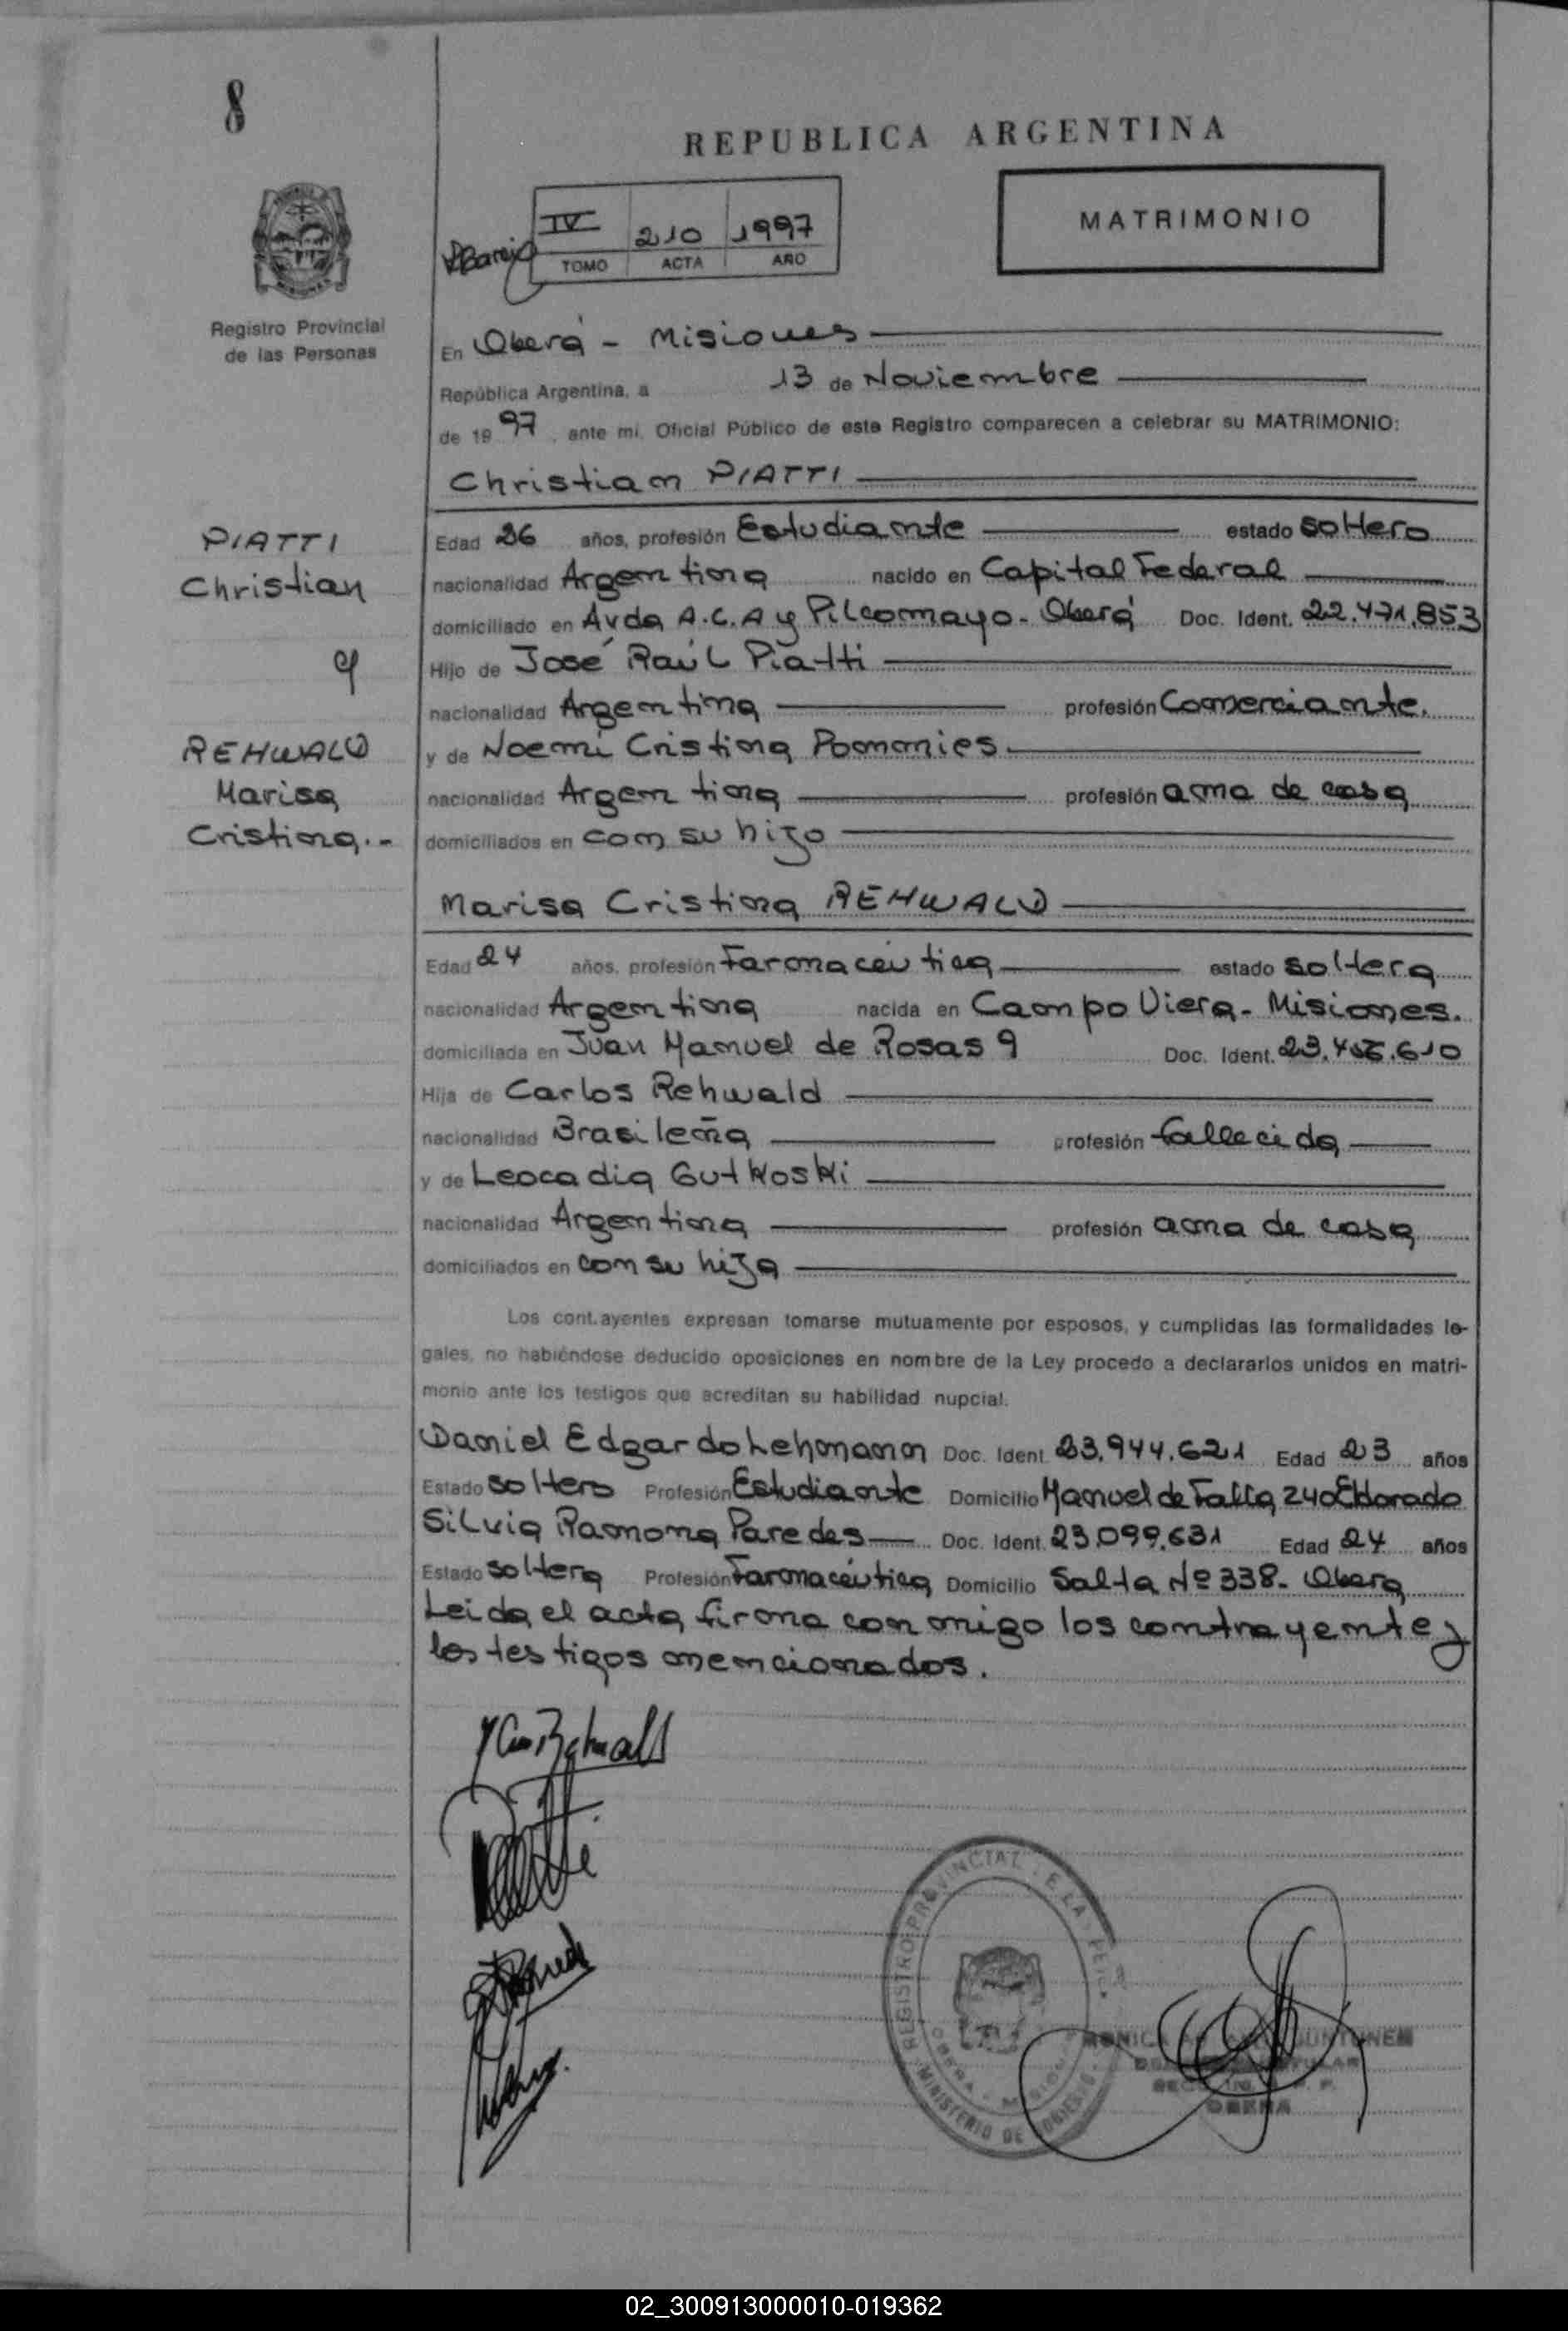 8
REPUBLICA ARGENTINA
IV 210 1997
TOMO ACTA AÑO
MATRIMONIO
Registro Provincial
de las Personas
En Oberá - Misiones
República Argentina, a 13 de Noviembre
de 1997, ante mi, Oficial Público de este Registro comparecen a celebrar su MATRIMONIO:
Christian PIATTI
PIATTI
Christian
y
REHWALD
Marisa
Cristina.-
Edad 26 años, profesión Estudiante estado soltero
nacionalidad Argentina nacido en Capital Federal
domiciliado en Avda A.C.A y Pilcomayo - Oberá Doc. Ident. 22.471.853
Hijo de José Raúl Piatti
nacionalidad Argentina profesión Comerciante.
y de Noemí Cristina Pommies.
nacionalidad Argentina profesión ama de casa
domiciliados en con su hijo
Marisa Cristina REHWALD
Edad 24 años, profesión Farmaceútica estado soltera
nacionalidad Argentina nacida en Campo Viera - Misiones.
domiciliada en Juan Manuel de Rosas 9 Doc. Ident.
Hija de Carlos Rehwald
nacionalidad Brasileña profesión fallecida
y de Leocadia Gutkoski
nacionalidad Argentina profesión ama de casa
domiciliados en con su hija
Los cont.ayentes expresan tomarse mutuamente por esposos, y cumplidas las formalidades le-
gales, no habiéndose deducido oposiciones en nombre de la Ley procedo a declararlos unidos en matri-
monio ante los testigos que acreditan su habilidad nupcial.
Daniel Edgardo Lehmann Doc. Ident. 23.944.621 Edad 23 años
Estado soltero Profesión Estudiante Domicilio Manuel de Falla 240 Eldorado
Silvia Ramona Paredes Doc. Ident. 23.099.631 Edad 24 años
Estado soltera Profesión Farmaceútica Domicilio Salta Nº 338 - Obera
Leida el acta firma con migo los contrayente y
los testigos mencionados.
REGISTRO PROVINCIAL
MINISTERIO DE GOBIERNO
OBERA
02_300913000010-019362